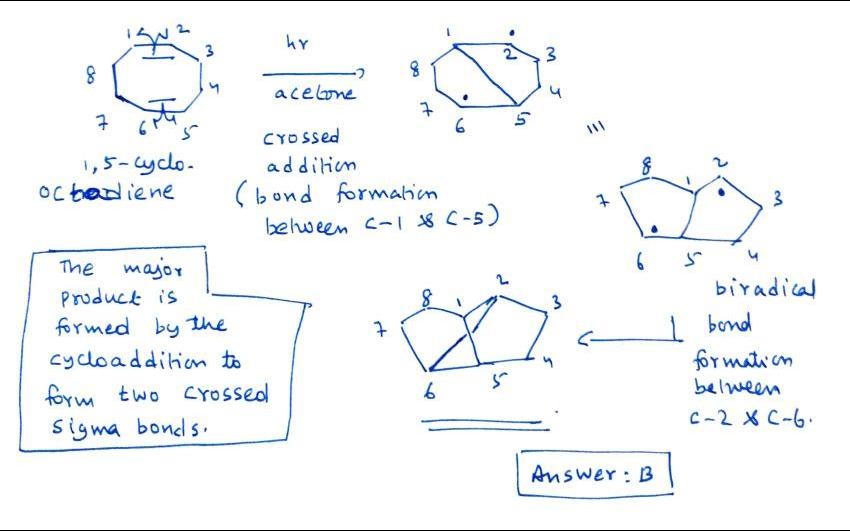 1 2
3
4
5
6
7
8
1,5-cyclo-
octadiene
hν
acetone
crossed
addition
(bond formation
between C-1 & C-5)
1
2
3
4
5
6
7
8
III
8 1 2
7 3
6 5 4
biradical
bond
formation
between
C-2 & C-6.
8 1 2
7 3
6 5 4
The major
product is
formed by the
cycloaddition to
form two crossed
sigma bonds.
Answer: B